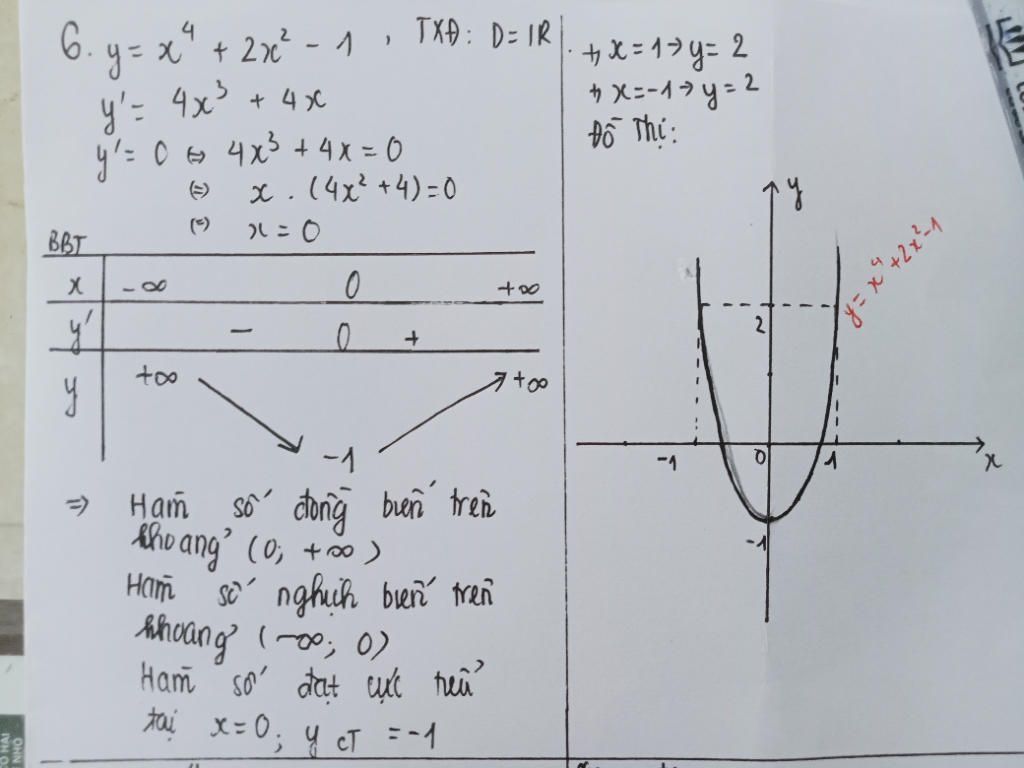 6. y = x⁴ + 2x² - 1 , TXĐ: D = IR
y' = 4x³ + 4x
y' = 0 ⇔ 4x³ + 4x = 0
(=) x . (4x² + 4) = 0
(=) x = 0
BBT
x -∞ 0 +∞
y' - 0 +
y +∞ +∞
-1
=> Hàm số đồng biến trên
khoảng (0; +∞)
Hàm số nghịch biến trên
khoảng (-∞; 0)
Hàm số đạt cực tiểu
tại x = 0; y CT = -1
+, x = 1 → y = 2
+, x = -1 → y = 2
Đồ Thị:
y
y = x⁴ + 2x² - 1
2
-1 0 1 x
-1